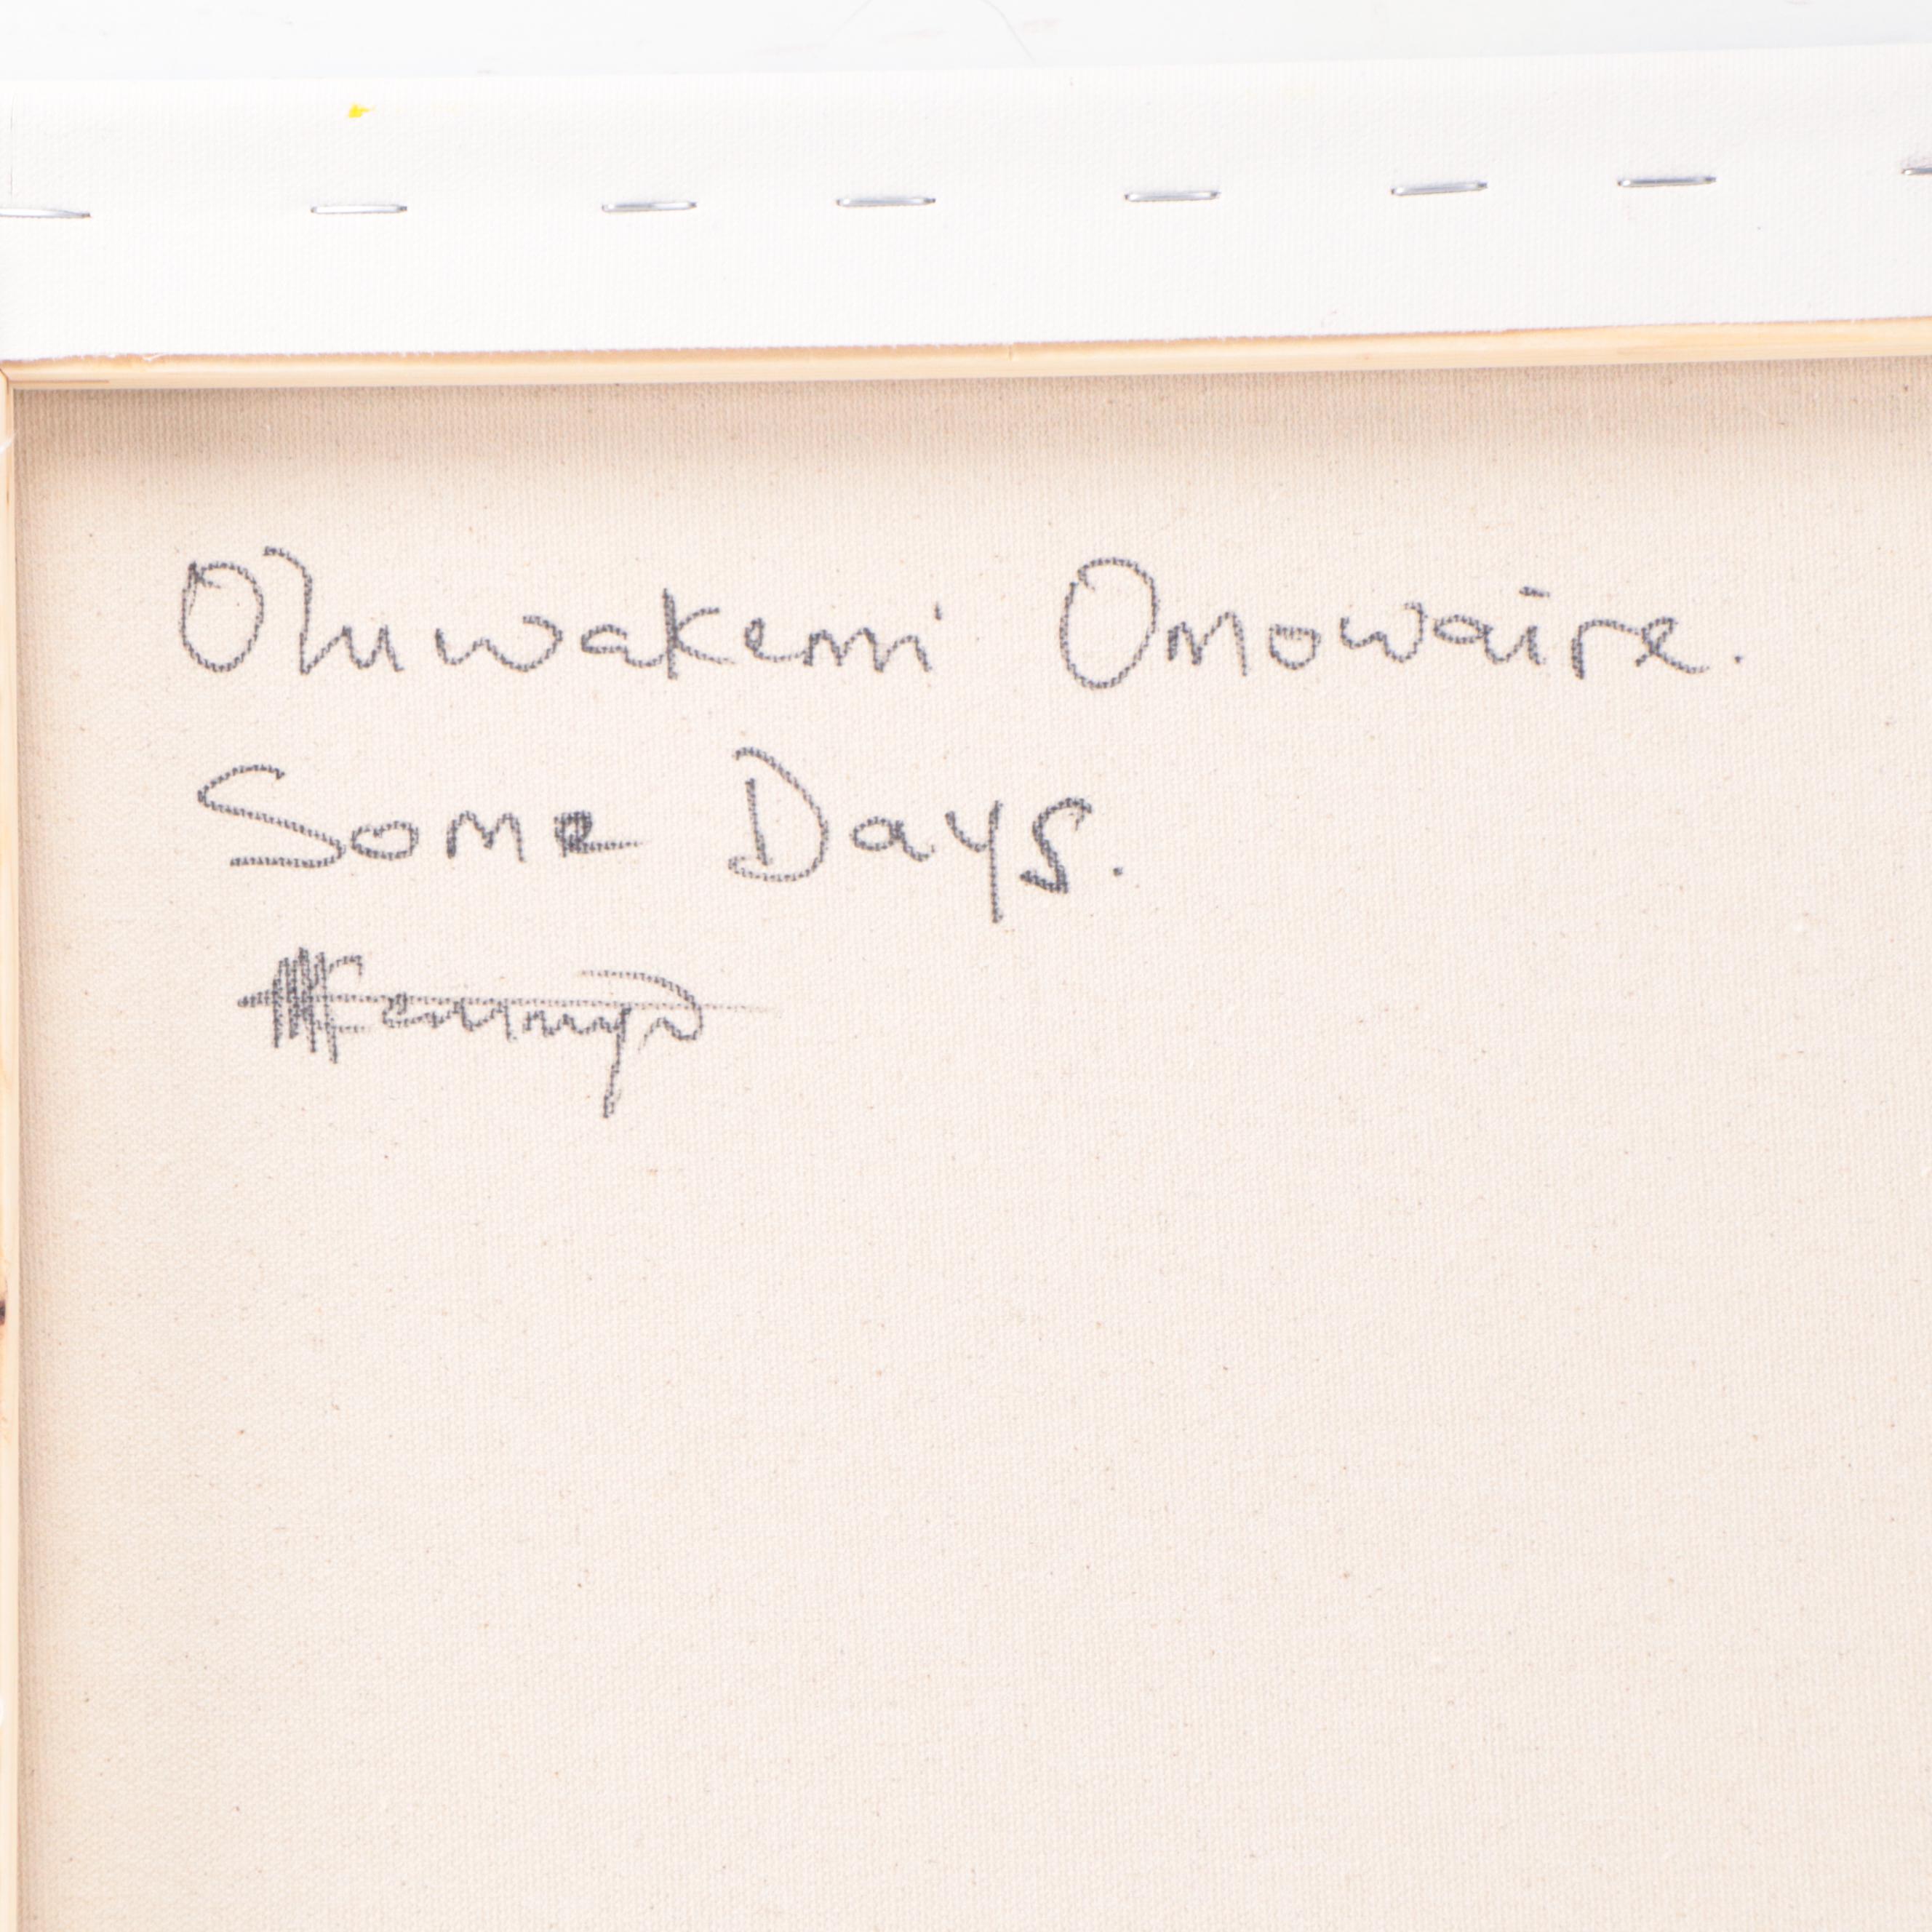 Oluwakemi Omowaire.
Some Days.